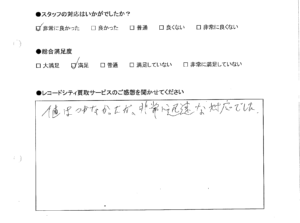 ●スタッフの対応はいかがでしたか？
☑非常に良かった □良かった □普通 □良くない □非常に良くない
●総合満足度
□大満足 ☑満足 □普通 □満足していない □非常に満足していない
●レコードシティ買取サービスのご感想を聞かせてください
値はつかなかったが、非常に迅速な対応でした。